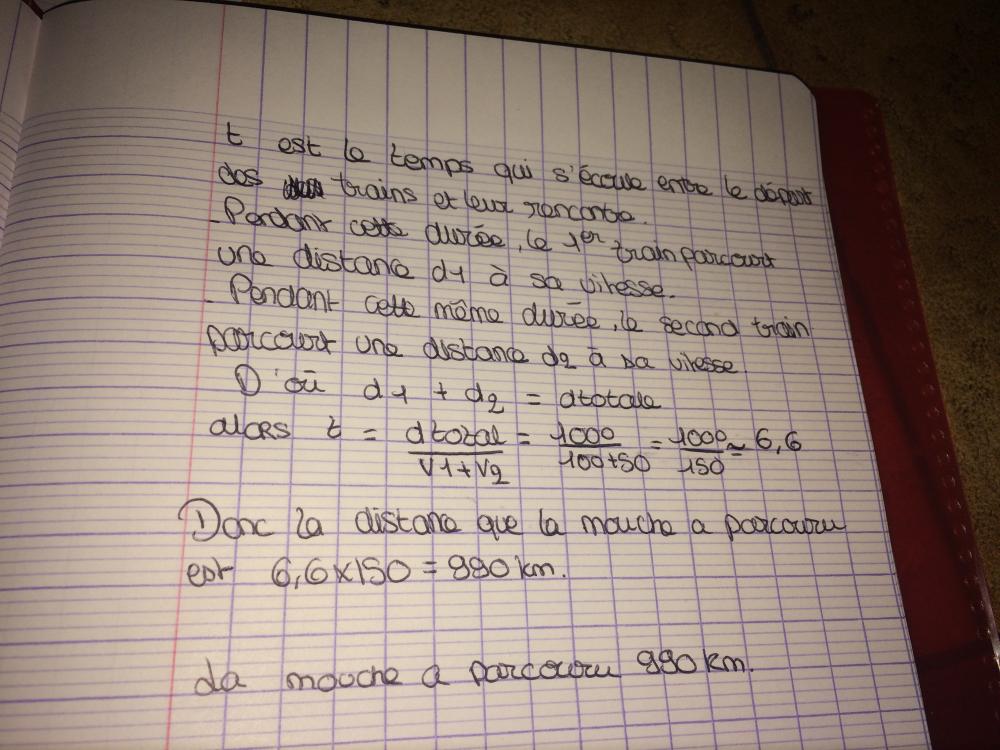 t est le temps qui s'écoule entre le départ
des trains et leur rencontre.
- Pendant cette durée, le 1er train parcourt
une distance d1 à sa vitesse.
- Pendant cette même durée, le second train
parcourt une distance d2 à sa vitesse.
D'où d1 + d2 = dtotale
alors t = dtotal/V1+V2 = 1000/100+50 = 1000/150 ≈ 6,6
Donc la distance que la mouche a parcouru
est 6,6x150 = 990 km.
La mouche a parcouru 990 km.